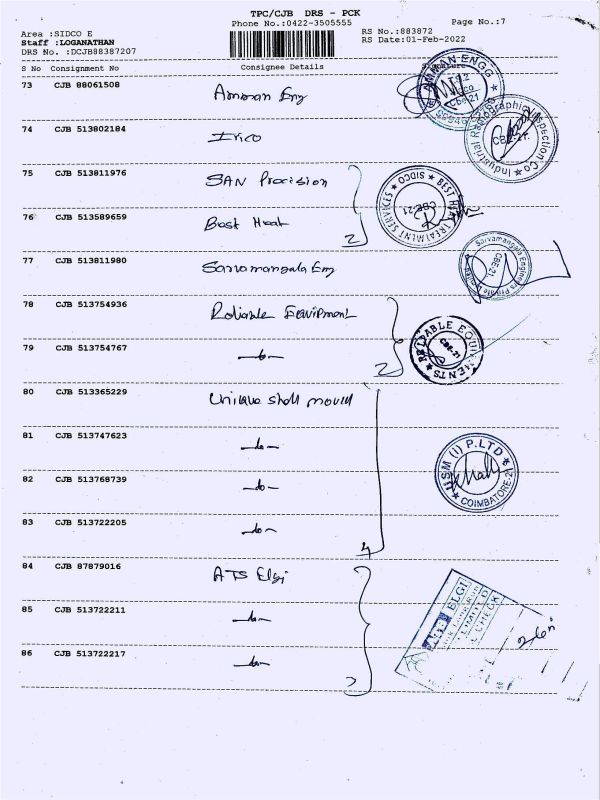 TPC/CJB DRS - PCK
Phone No.:0422-3505555
Page No.:7
Area :SIDCO E
Staff :LOGANATHAN
DRS No. :DCJB88387207
RS No.:883872
RS Date:01-Feb-2022
S No Consignment No Consignee Details Signature
73 CJB 88061508 Amman Eng
AMMAN ENGG
CBE-21
74 CJB 513802184 Irico
Industrial Radiographic Inspection Co
CBE-21
75 CJB 513811976 SAN Precision
76 CJB 513589659 Best Heat 2
BEST HEAT TREATMENT SERVICES SIDCO
CBE-21
77 CJB 513811980 Sarvamangala Eng
Sarvamangala Engineers Private Limited
CBE-21
78 CJB 513754936 Reliable Equipment
79 CJB 513754767 -do- 2
RELIABLE EQUIPMENTS
CBE-21
80 CJB 513365229 Unique shell mould
81 CJB 513747623 -do-
82 CJB 513768739 -do-
USM (I) P.LTD
COIMBATORE
83 CJB 513722205 -do- 4
84 CJB 87879016 ATS Elgi
85 CJB 513722211 -do-
86 CJB 513722217 -do-
ELGI
LIMITED
CHECK